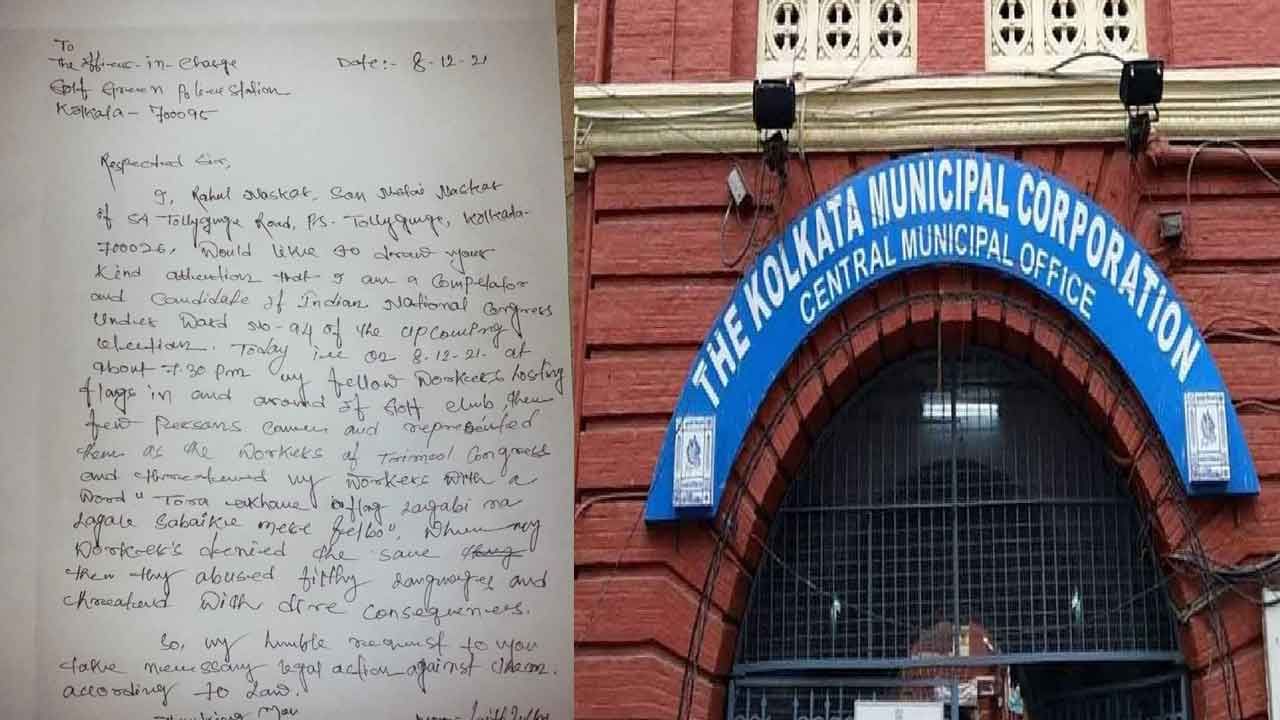 To
The Officer-in-Charge
Date:- 8-12-21
Golf Green Police Station
Kolkata - 700095
Respected Sir,
I, Rahul Naskar, Son
of 5A Tollygunge Road, P.S- Tollygunge, Kolkata-
700026, Would like to draw your
kind attention that I am a Compitator
and Candidate of Indian National Congress
Under Ward No-94 of the upcoming
election. Today i.e on 8-12-21 at
about 7.30 pm my fellow workers hosting
flags in and around of Golf club, then
few Persons came and represented
them as the workers of Trinmool Congress
and threatened my workers with a
word " Tora akhane flag lagabi na
lagale Sabaike mere felbo". When my
workers denied the same
then thy abused filthy languages and
threatend with dire consequences.
So, my humble request to you
take necessary legal action against them
according to Law.
Thanking You
THE KOLKATA MUNICIPAL CORPORATION
CENTRAL MUNICIPAL OFFICE